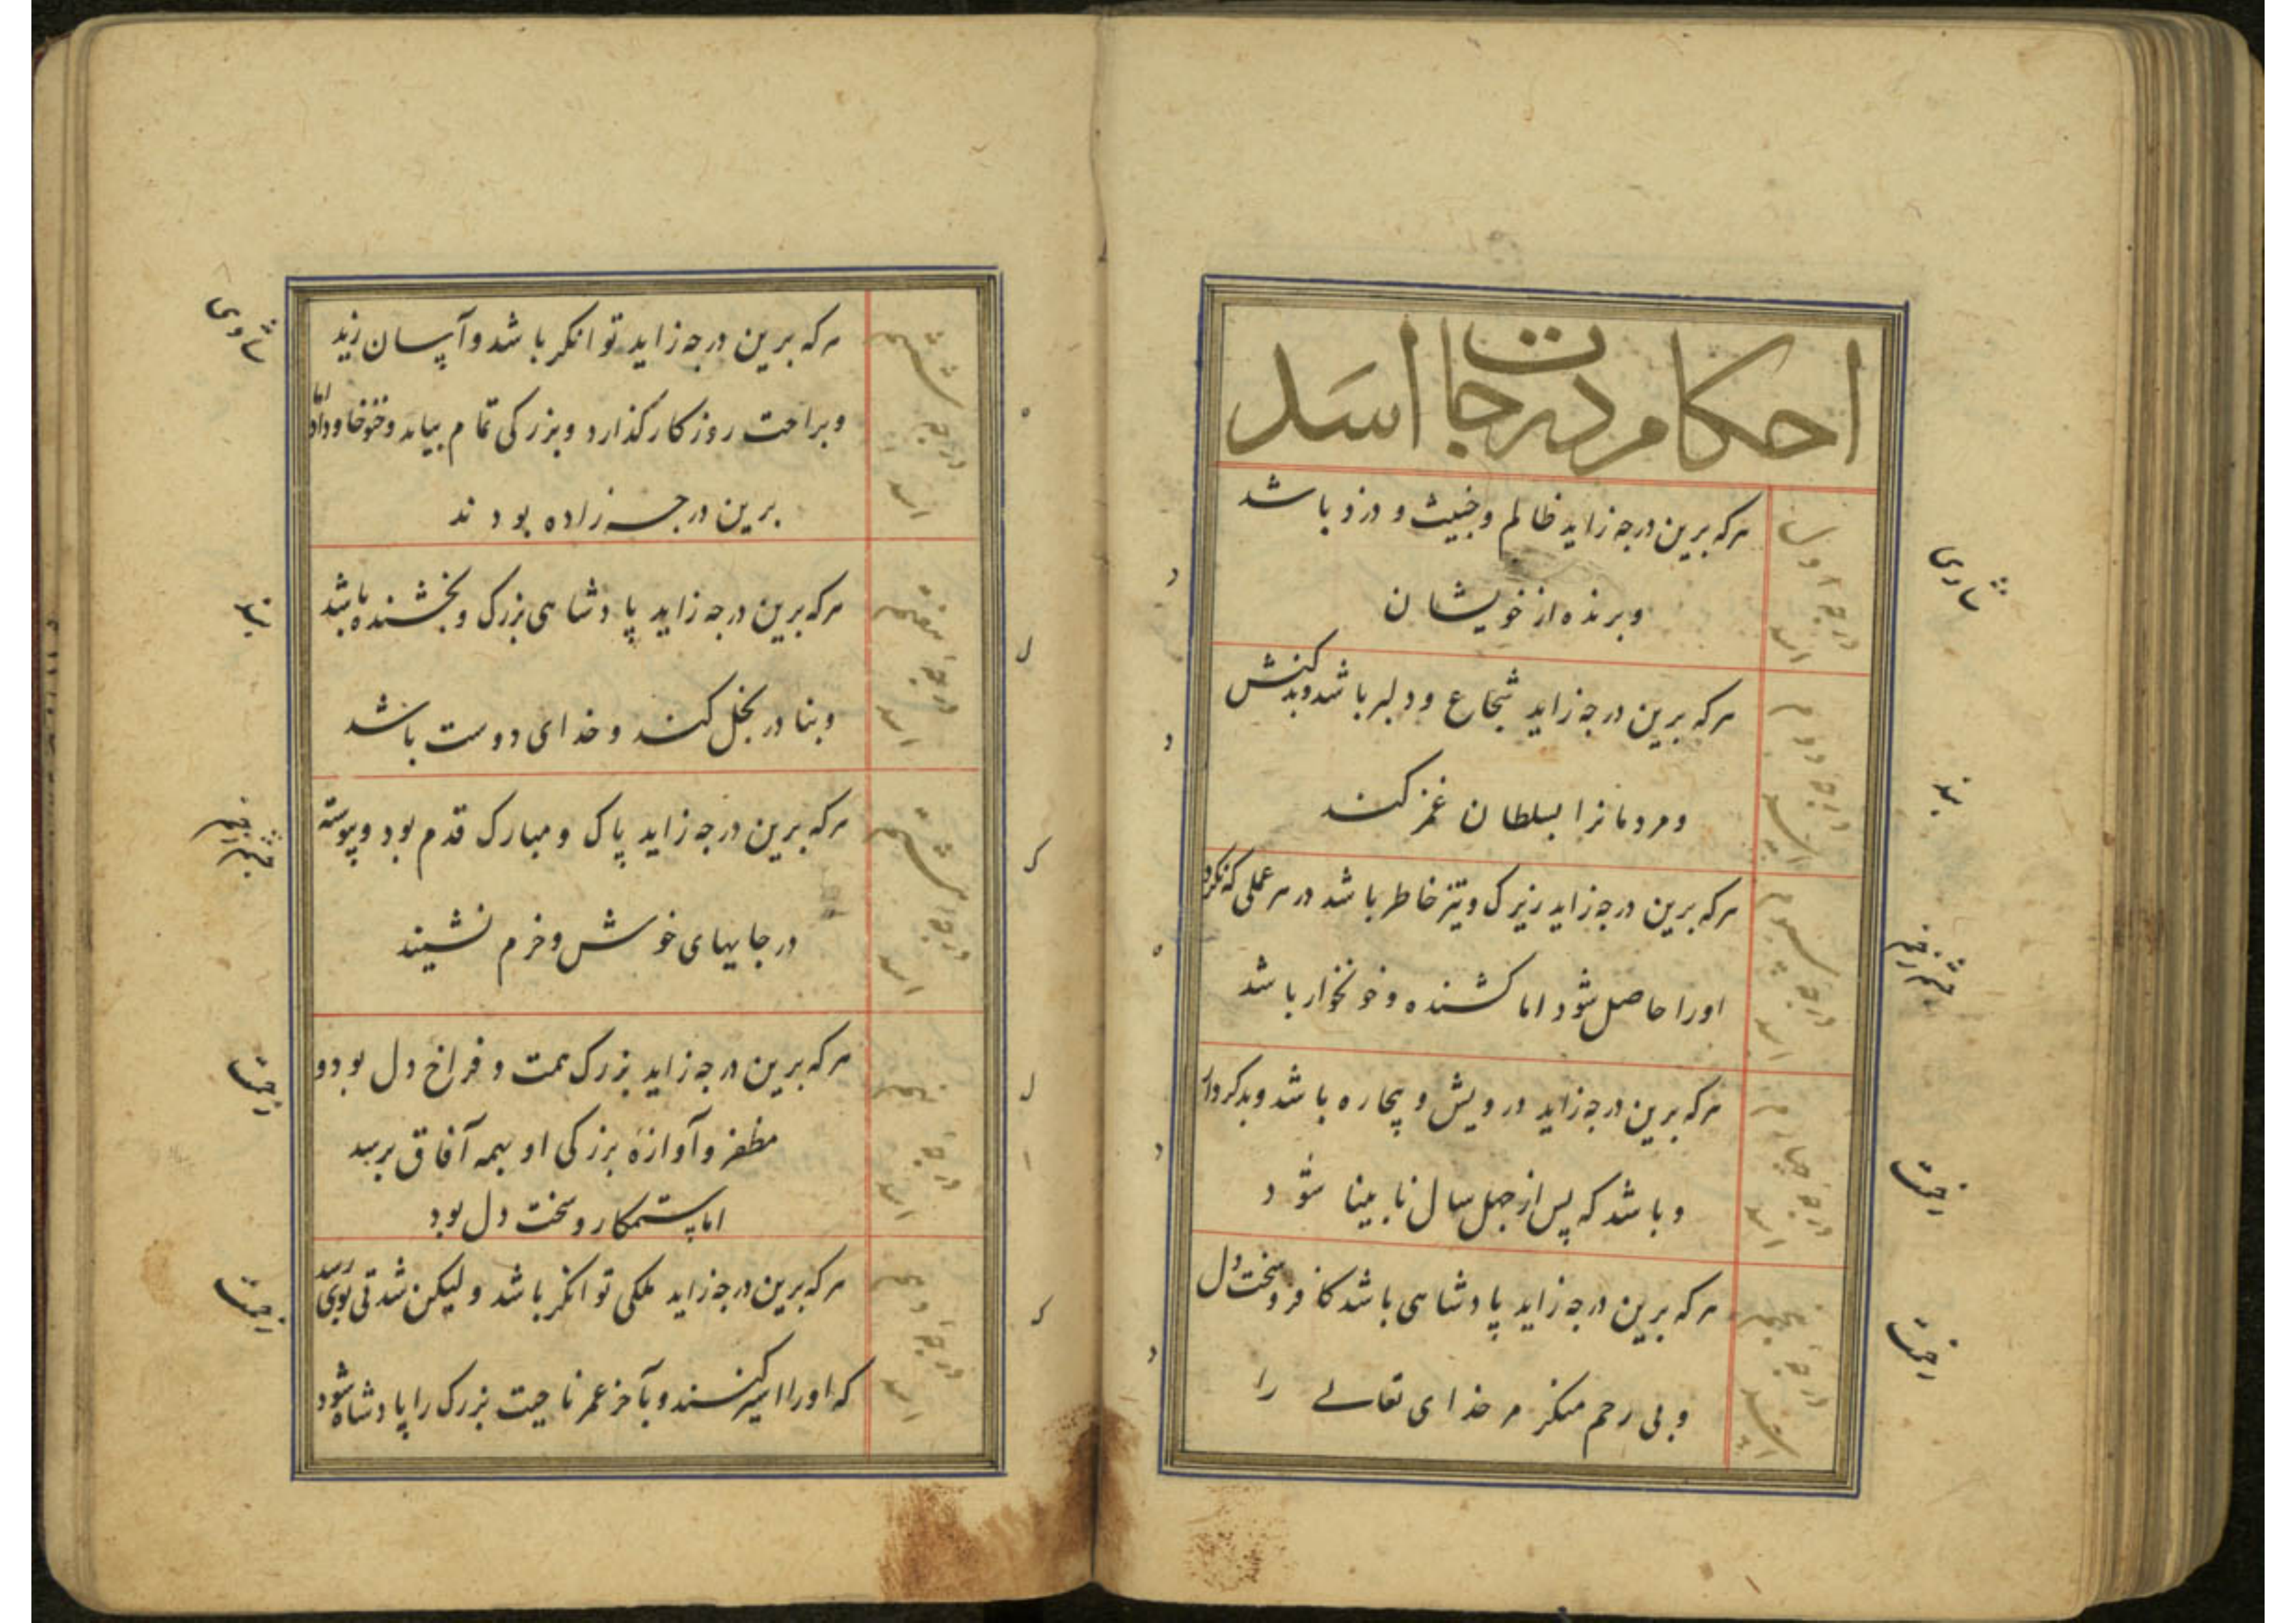 احکام درجات اسد
درجه اول اسد
هرکه برین درجه زاید ظالم و خبیث و دزد باشد
و برنده از خویشان
درجه دوم اسد
هرکه برین درجه زاید شجاع و دلیر باشد و بدکنش
و مردمانرا بسلطان غمز کند
درجه سیوم اسد
هرکه برین درجه زاید زیرک و تیز خاطر باشد در هر عملی که نکرد
اورا حاصل شود اما کشنده و خونخوار باشد
درجه چهارم اسد
هرکه برین درجه زاید درویش و بیچاره باشد و بدکردار
و باشد که پس از چهل سال نابینا شود
درجه پنجم اسد
هرکه برین درجه زاید پادشاهی باشد کافر و سخت دل
و بی رحم منکر مر خدای تعالی را
درجه ششم اسد
هرکه برین درجه زاید توانکر باشد و آسان زید
و براحت روزکار کذارد و بزرکی تمام بیابد
برین درجه زاده بودند
درجه هفتم اسد
هرکه برین درجه زاید پادشاهی بزرک و بخشنده باشد
و بنادر بخل کند و خدای دوست باشد
درجه هشتم اسد
هرکه برین درجه زاید پاک و مبارک قدم بود و پیوسته
در جایهای خوش و خرم نشیند
درجه نهم اسد
هرکه برین درجه زاید بزرک همت و فراخ دل بود و
مظفر و آوازهٔ بزرکی او بهمه آفاق برسد
اما ستمکار و سخت دل بود
درجه دهم اسد
هرکه برین درجه زاید ملکی توانکر باشد و لیکن شدتی بوی رسد
که اورا اسیر کنند و بآخر عمر ناحیت بزرک را پادشاه شود